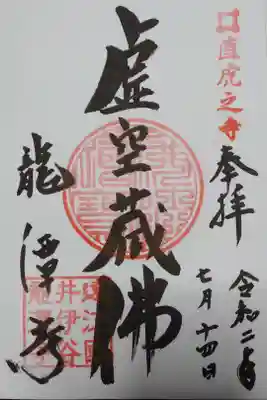 直虎之寺
奉拝
令和二年
七月十四日
虚空蔵佛
龍潭寺
遠江國
井伊谷
龍潭寺